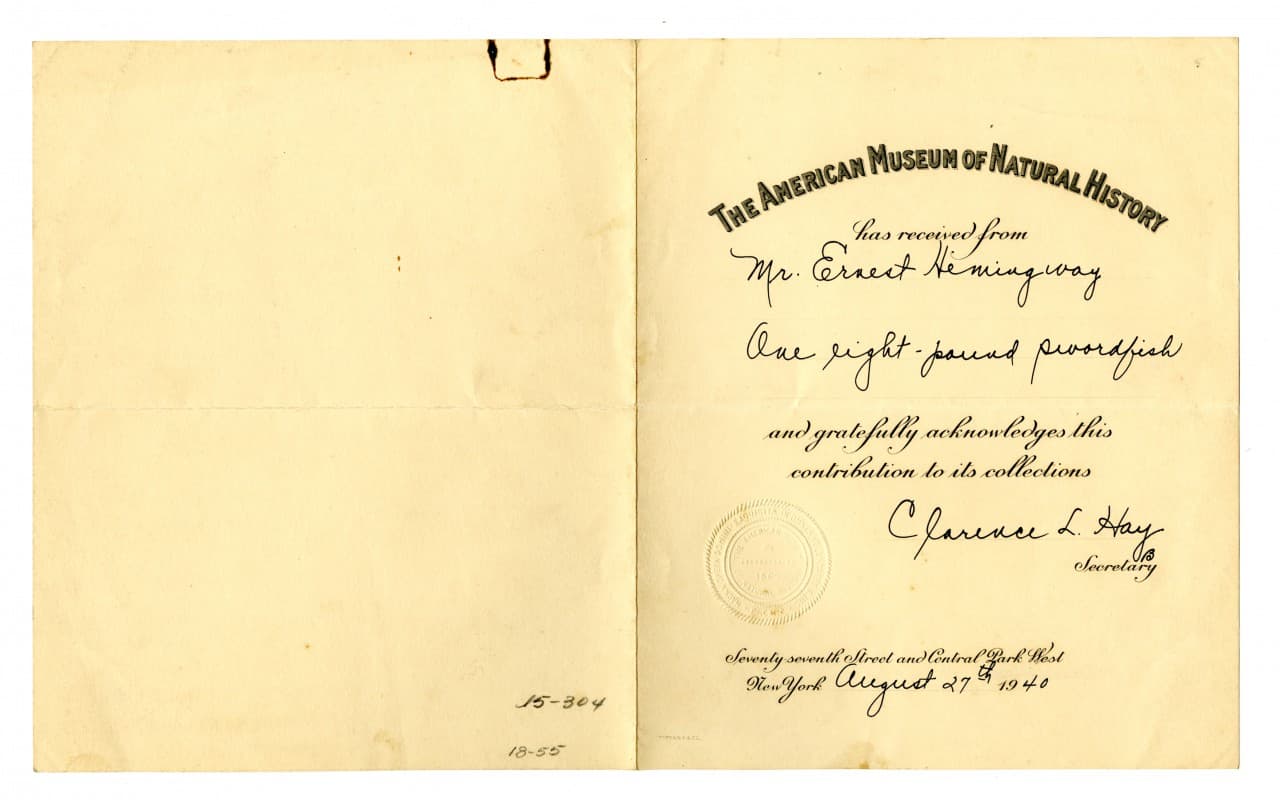 15-304
18-55
THE AMERICAN MUSEUM OF NATURAL HISTORY
has received from
Mr. Ernest Hemingway
One eight-pound swordfish
and gratefully acknowledges this
contribution to its collections
Clarence L. Hay
B
Secretary
Seventy-seventh Street and Central Park West
New York August 27th 1940